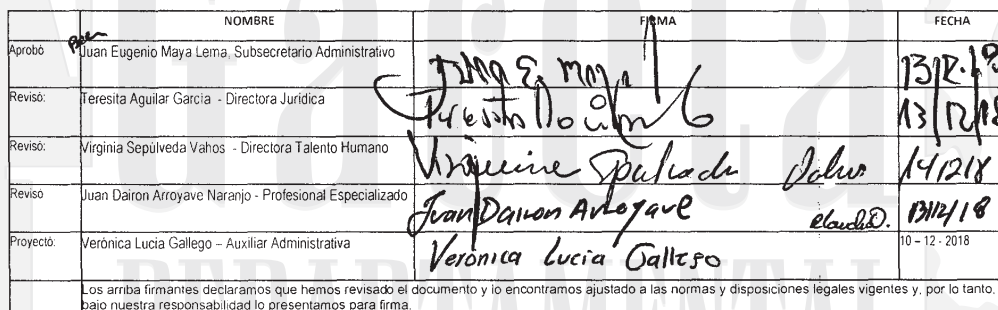 NOMBRE FIRMA FECHA
Aprobó Juan Eugenio Maya Lema, Subsecretario Administrativo Juan E. Maya 13/12/18
Revisó: Teresita Aguilar García - Directora Jurídica Teresita Aguilar G 13/12/18
Revisó: Virginia Sepúlveda Vahos - Directora Talento Humano Virginia Sepulveda Vahos 14/12/18
Revisó Juan Dairon Arroyave Naranjo - Profesional Especializado Juan Dairon Arroyave Claudia O. 13/12/18
Proyectó: Verónica Lucia Gallego – Auxiliar Administrativa Verónica Lucía Gallego 10 – 12 - 2018
Los arriba firmantes declaramos que hemos revisado el documento y lo encontramos ajustado a las normas y disposiciones legales vigentes y, por lo tanto,
bajo nuestra responsabilidad lo presentamos para firma.
DEPARTAMENTAL